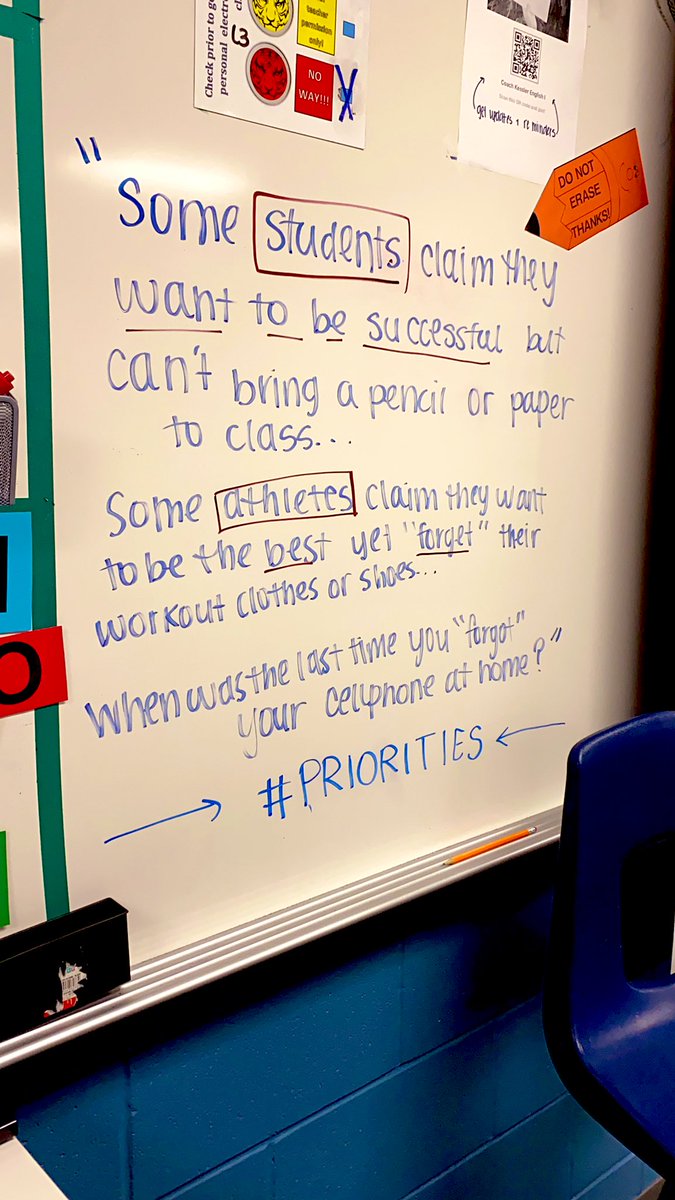 Check prior to ge
personal electro
cl
L3
teacher
permission
only!
NO
WAY!!!
Coach Kessler English I
get updates + reminders
DO NOT
ERASE
THANKS!
"
Some students claim they
want to be successful but
can't bring a pencil or paper
to class...
Some athletes claim they want
to be the best yet "forget" their
workout clothes or shoes...
When was the last time you "forgot"
your cellphone at home?"
#PRIORITIES